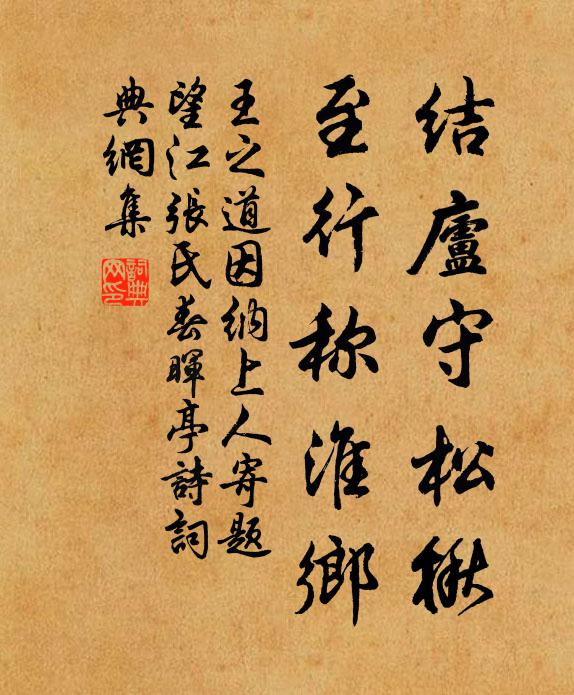 结廬守松楸
至行称淮鄉
王之道因納上人寄题
望江張氏春暉亭詩詞
典網集
詞典
网印